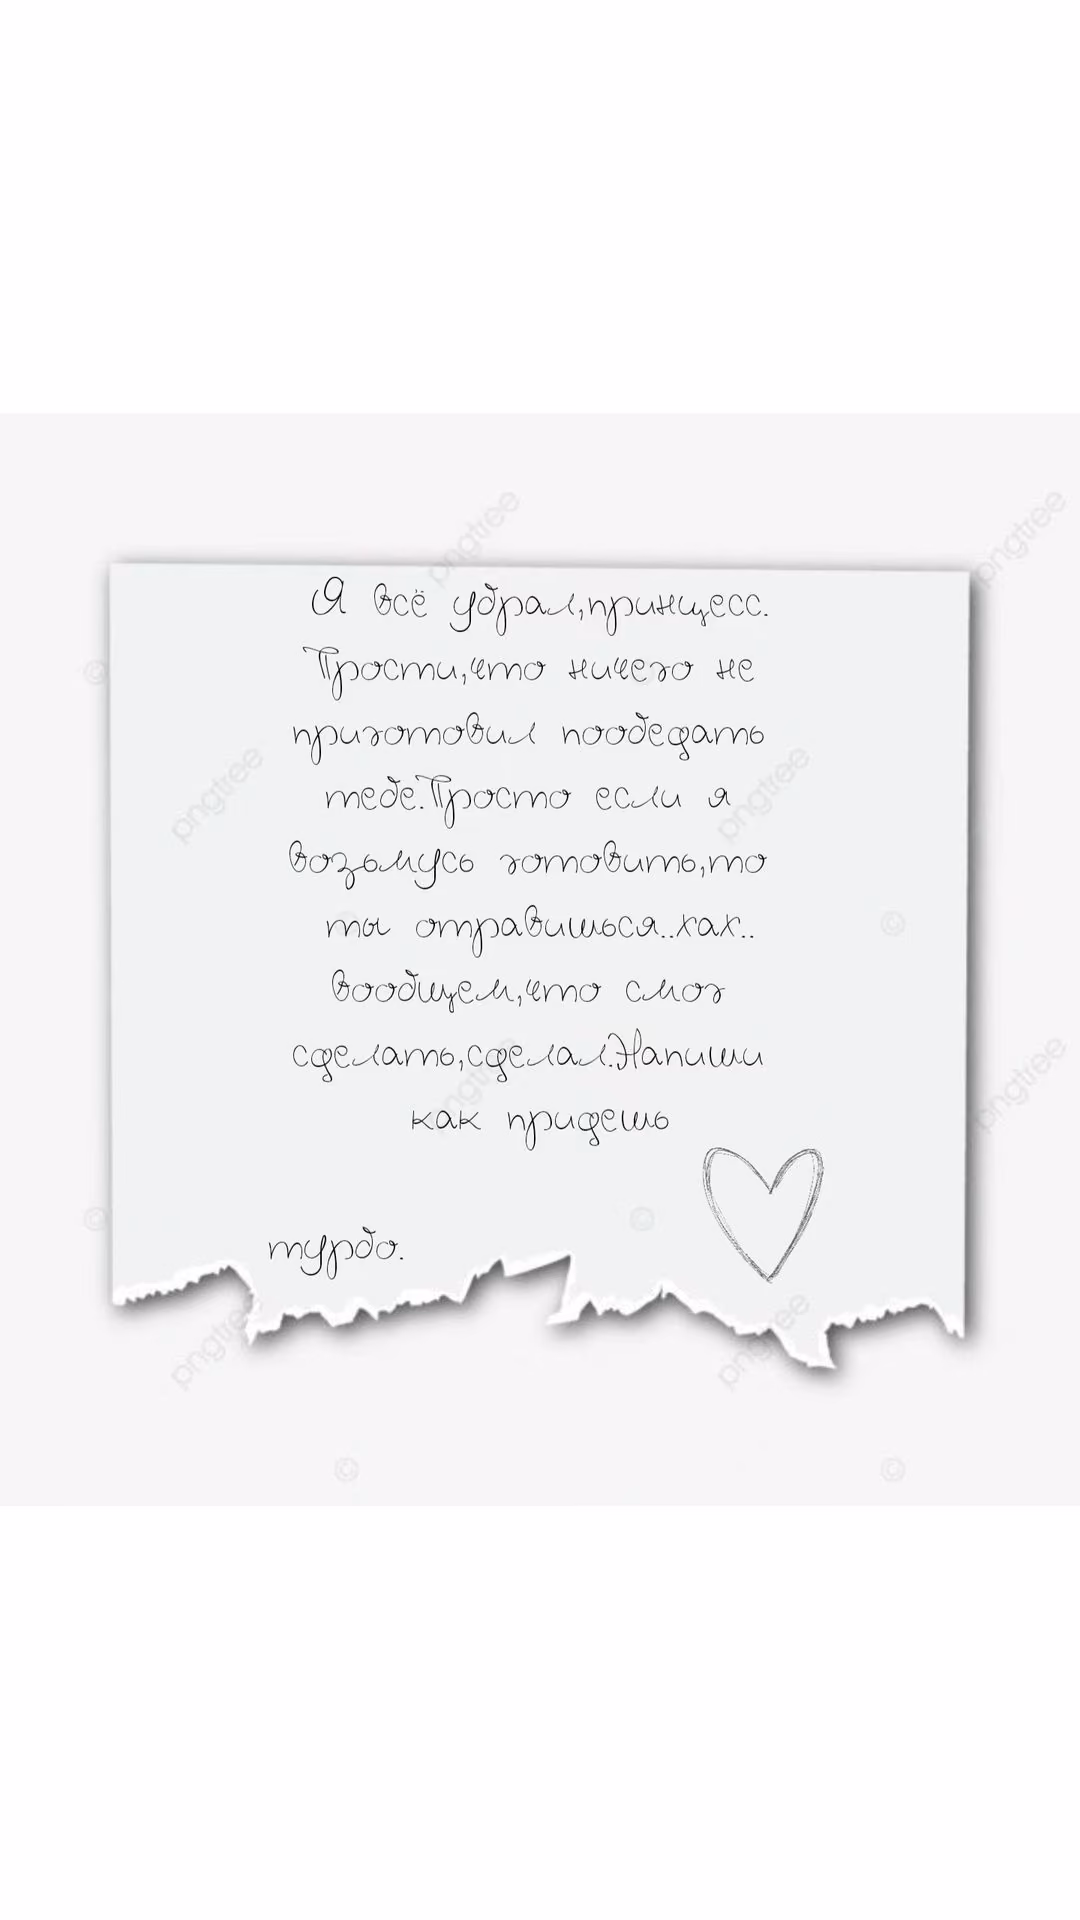 Я всё убрал,принцесс.
Прости,что ничего не
приготовил пообедать
тебе.Просто если я
возьмусь готовить,то
ты отравишься..хах..
вообщем,что смог
сделать,сделал.Напиши
как придешь
турбо.
pngtree
pngtree
pngtree
pngtree
pngtree
pngtree
pngtree
pngtree